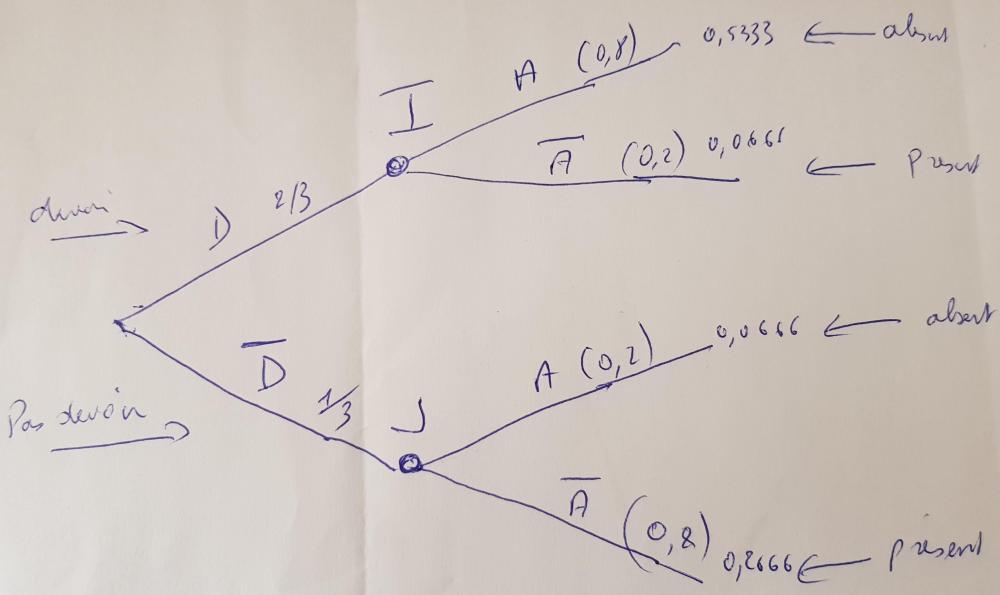 A (0,8) 0,5333 ← absent
I
A (0,2) 0,0666 ← présent
devoir
D 2/3
A (0,2) 0,0666 ← absent
D 1/3
Pas devoir
J
A (0,8) 0,2666 ← présent